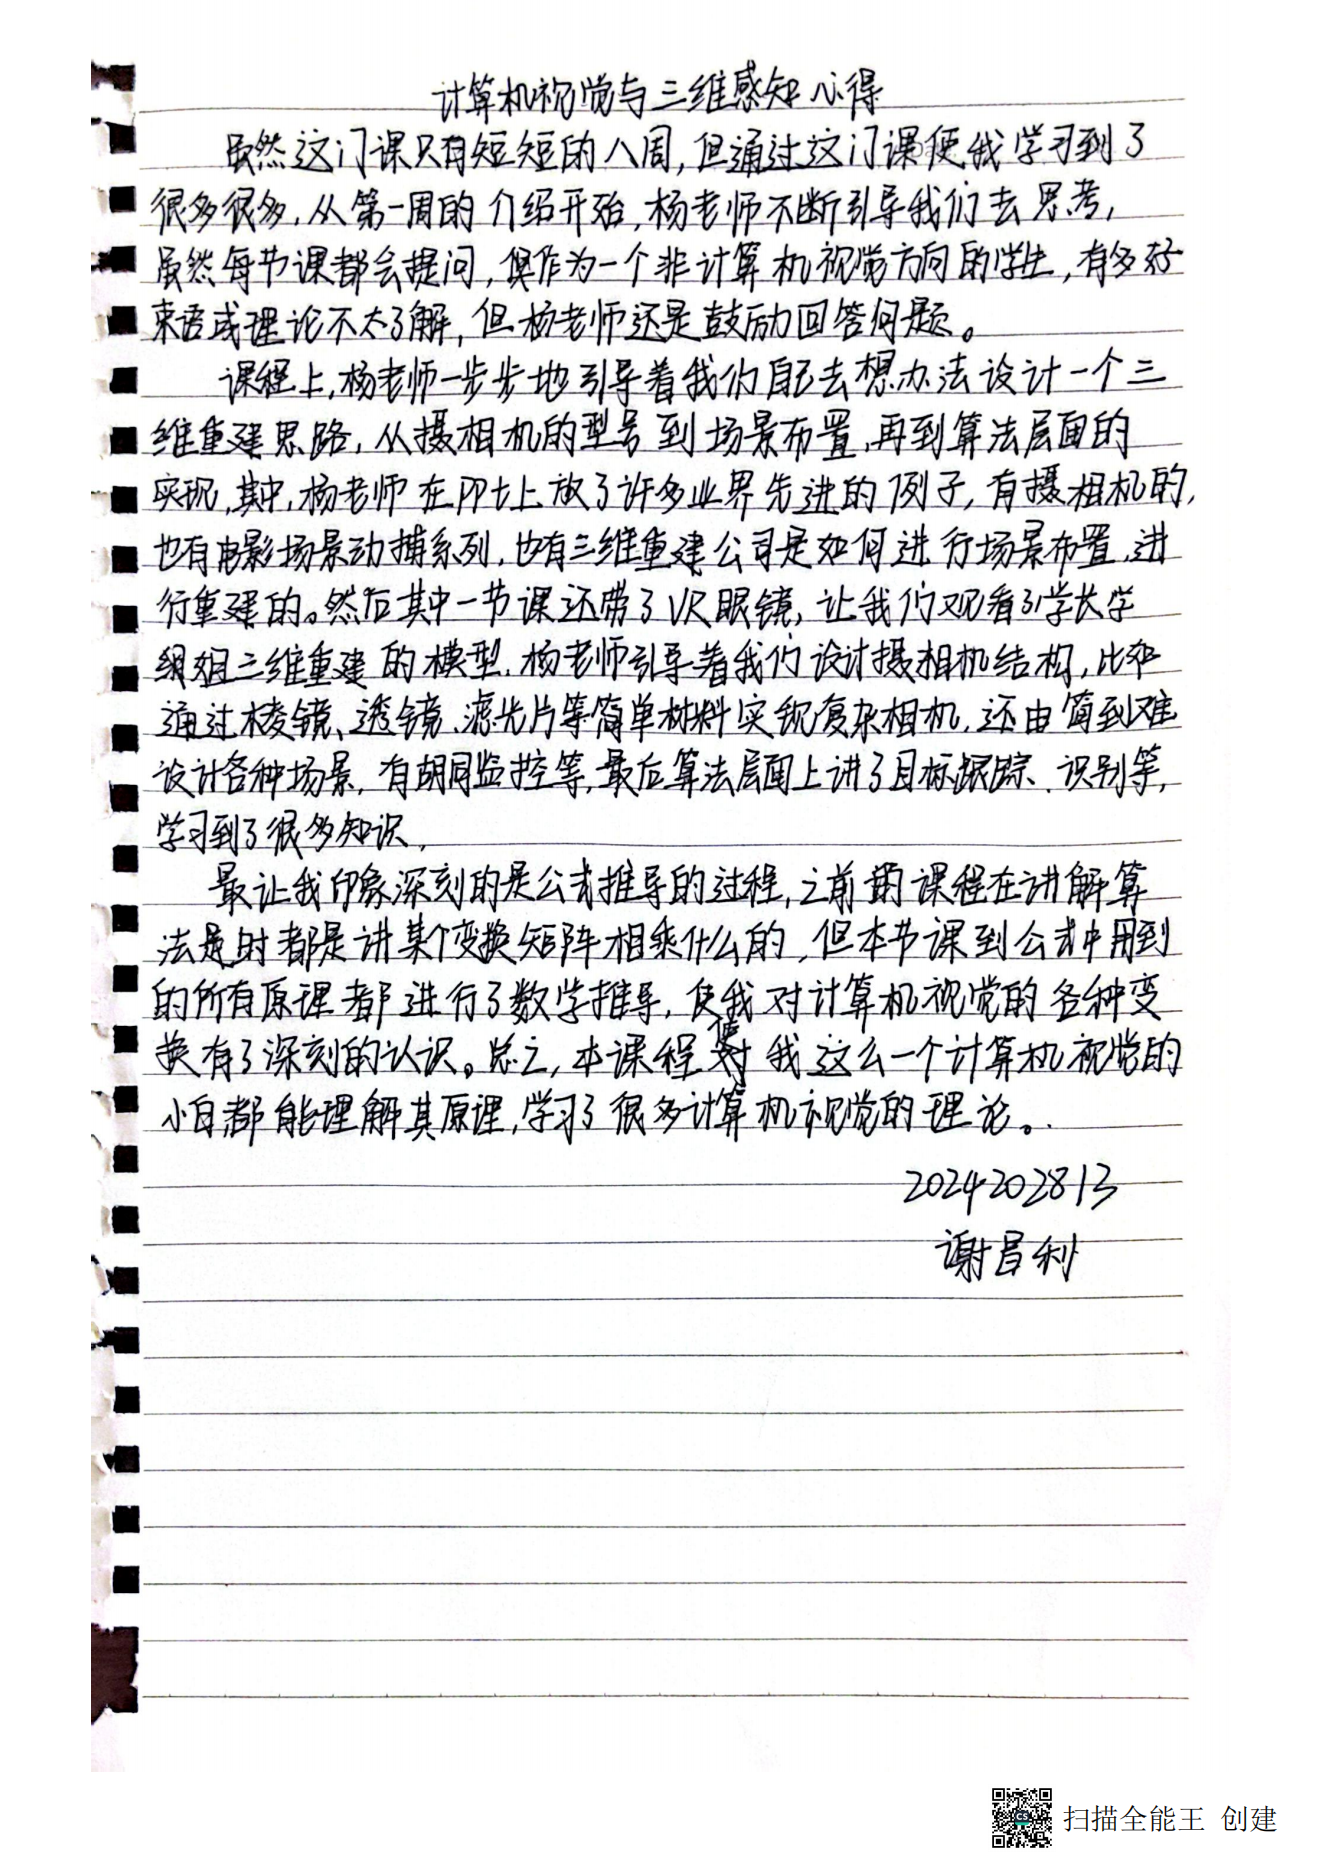 计算机视觉与三维感知心得
虽然这门课只有短短的八周,但通过这门课使我学习到了
很多很多,从第一周的介绍开始,杨老师不断引导我们去思考,
虽然每节课都会提问,但作为一个非计算机视觉方向的学生,有多好
术语或理论不太了解,但杨老师还是鼓励回答问题。
课程上,杨老师一步步地引导着我们自己去想办法设计一个三
维重建思路,从摄相机的型号到场景布置,再到算法层面的
实现,其中,杨老师在PPt上放了许多业界先进的例子,有摄相机的,
也有电影场景动捕系列,也有三维重建公司是如何进行场景布置,进
行重建的。然后其中一节课还带了VR眼镜,让我们观看了学长学
姐三维重建的模型,杨老师引导着我们设计摄相机结构,比如
通过棱镜、透镜、滤光片等简单材料实现复杂相机,还由简到难
设计各种场景,有胡同监控等,最后算法层面上讲了目标跟踪、识别等,
学习到了很多知识,
最让我印象深刻的是公式推导的过程,之前的课程在讲解算
法时都是讲某个变换矩阵相乘什么的,但本节课到公式中用到
的所有原理都进行了数学推导,使我对计算机视觉的各种变
换有了深刻的认识。总之,本课程使我这么一个计算机视觉的
小白都能理解其原理,学习了很多计算机视觉的理论。
2024202813
谢昌利
扫描全能王 创建